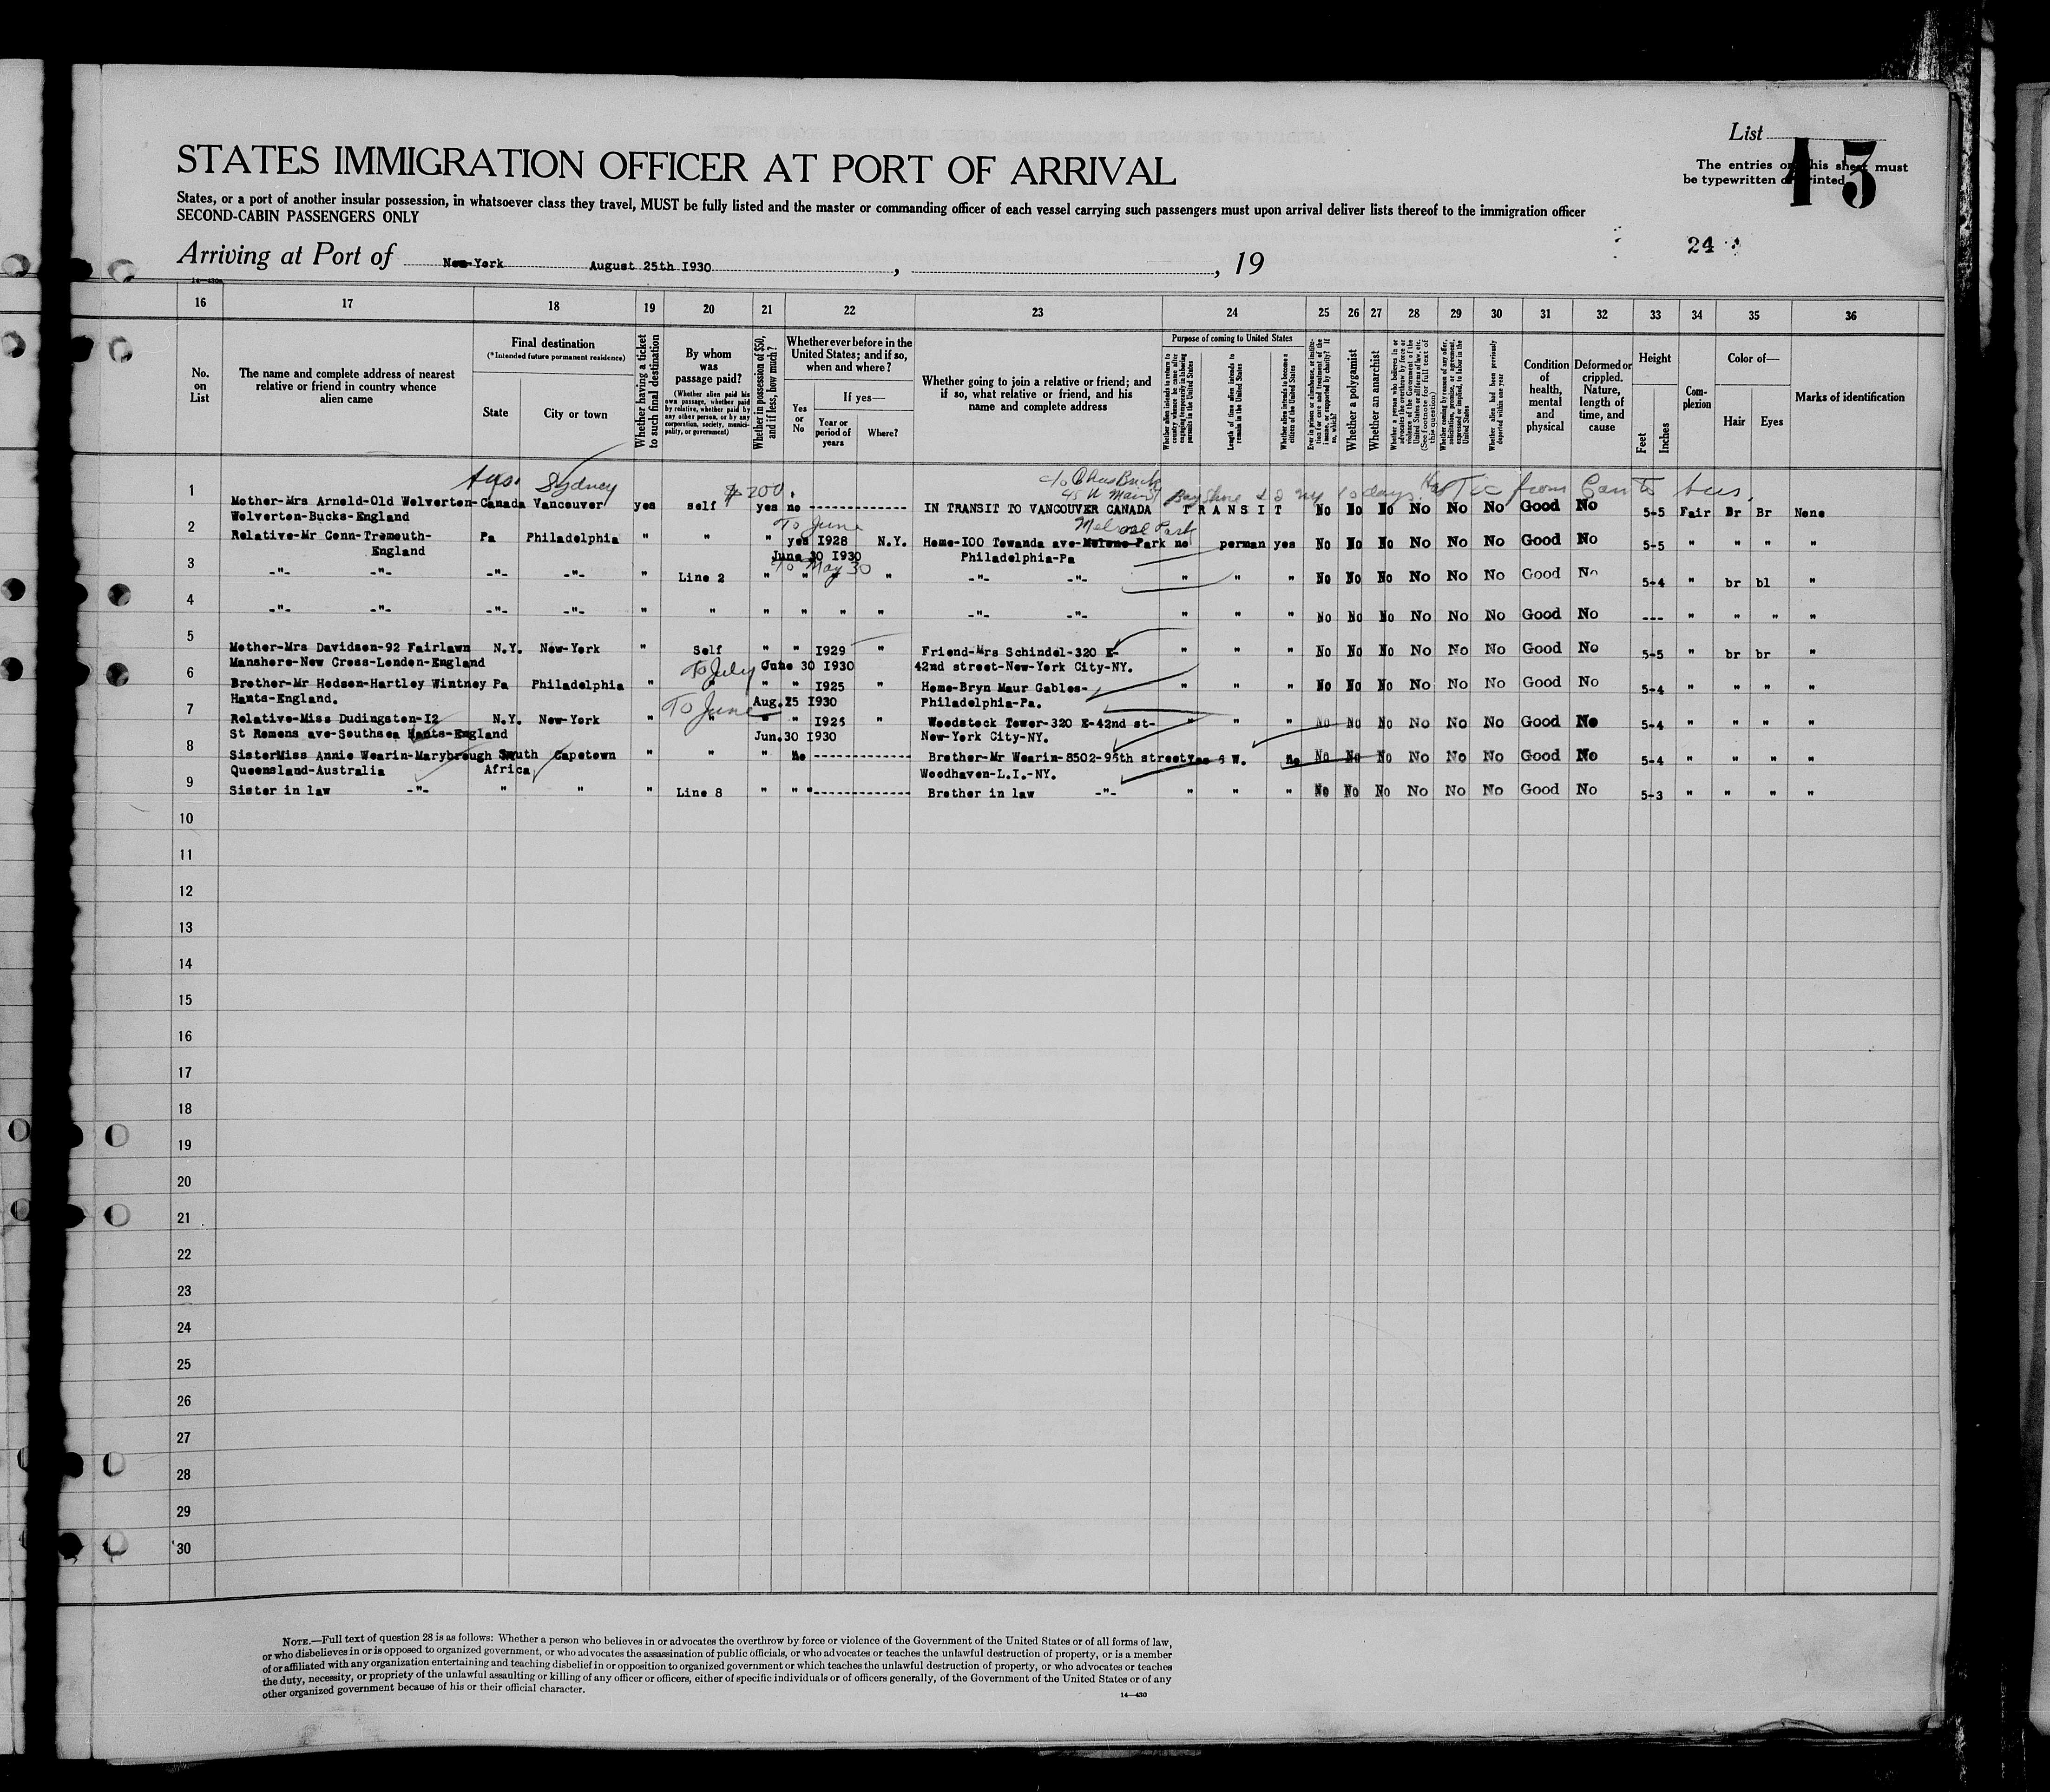 List
45
The entries on this sheet must
be typewritten or printed
STATES IMMIGRATION OFFICER AT PORT OF ARRIVAL
States, or a port of another insular possession, in whatsoever class they travel, MUST be fully listed and the master or commanding officer of each vessel carrying such passengers must upon arrival deliver lists thereof to the immigration officer
SECOND-CABIN PASSENGERS ONLY
24
Arriving at Port of New-York August 25th I930 , , 19
16 17 18 19 20 21 22 23 24 25 26 27 28 29 30 31 32 33 34 35 36
No. on List
The name and complete address of nearest relative or friend in country whence alien came
Final destination
(*Intended future permanent residence)
State
City or town
Whether having a ticket to such final destination
By whom was passage paid?
(Whether alien paid his own passage, whether paid by relative, whether paid by any other person, or by any corporation, society, municipality, or government)
Whether in possession of $50, and if less, how much?
Whether ever before in the United States; and if so, when and where?
Yes or No
If yes—
Year or period of years
Where?
Whether going to join a relative or friend; and if so, what relative or friend, and his name and complete address
Purpose of coming to United States
Whether alien intends to return to country whence he came after engaging temporarily in laboring pursuits in the United States
Length of time alien intends to remain in the United States
Whether alien intends to become a citizen of the United States
Ever in prison or almshouse, or institution for care and treatment of the insane, or supported by charity? If so, which?
Whether a polygamist
Whether an anarchist
Whether a person who believes in or advocates the overthrow by force or violence of the Government of the United States or all forms of law, etc. (See footnote for full text of this question)
Whether coming by reason of any offer, solicitation, promise, or agreement, expressed or implied, to labor in the United States
Whether alien had been previously deported within one year
Condition of health, mental and physical
Deformed or crippled. Nature, length of time, and cause
Height
Feet
Inches
Complexion
Color of—
Hair
Eyes
Marks of identification
Aus. Sydney $200. c/o Chas
45 Main St Bay Shore 10 days. Has Tic from Can to Aus.
1 Mother-Mrs Arnold-Old Wolverton- Canada Vancouver yes self yes no ------------- IN TRANSIT TO VANCOUVER CANADA T R A N S I T No No No No No No Good No 5-5 Fair Br Br None
Wolverton-Bucks-England To June Melrose Park
2 Relative-Mr Conn-Tremouth- Pa Philadelphia " " " yes I928 N.Y. Home-I00 Towanda ave-Melone Park no perman yes No No No No No No Good No 5-5 " " " "
England June 30 I930 Philadelphia-Pa
To May 30
3 -"- -"- -"- -"- " Line 2 " " " " -"- -"- " " " No No No No No No Good No 5-4 " br bl "
4 -"- -"- -"- -"- " " " " " " -"- -"- " " " No No No No No No Good No --- " " " "
5 Mother-Mrs Davidson-92 Fairlawn N.Y. New-York " Self " " I929 " Friend-Mrs Schindel-320 E- " " " No No No No No No Good No 5-5 " br br "
Manshore-New Cross-London-England To July June 30 I930 42nd street-New-York City-NY.
6 Brother-Mr Hodson-Hartley Wintney Pa Philadelphia " " " " I925 " Home-Bryn Maur Gables- " " " No No No No No No Good No 5-4 " " " "
Hants-England. To June Aug.25 I930 Philadelphia-Pa.
7 Relative-Miss Dudingston-I2 N.Y. New-York " " " " I925 " Woodstock Tower-320 E-42nd st- " " " No No No No No No Good No 5-4 " " " "
St Romons ave-Southsea Hants-England Jun.30 I930 New-York City-NY.
8 SisterMiss Annie Wearin-Marybrough South Capetown " " " No ------------- Brother-Mr Wearin-8502-95th street Yes 6 W. no No No No No No No Good No 5-4 " " " "
Queensland-Australia Africa Woodhaven-L.I.-NY.
9 Sister in law -"- " " " Line 8 " " "------------- Brother in law -"- " " " No No No No No No Good No 5-3 " " " "
10
11
12
13
14
15
16
17
18
19
20
21
22
23
24
25
26
27
28
29
30
NOTE.—Full text of question 28 is as follows: Whether a person who believes in or advocates the overthrow by force or violence of the Government of the United States or of all forms of law,
or who disbelieves in or is opposed to organized government, or who advocates the assassination of public officials, or who advocates or teaches the unlawful destruction of property, or is a member
of or affiliated with any organization entertaining and teaching disbelief in or opposition to organized government or which teaches the unlawful destruction of property, or who advocates or teaches
the duty, necessity, or propriety of the unlawful assaulting or killing of any officer or officers, either of specific individuals or of officers generally, of the Government of the United States or of any
other organized government because of his or their official character.
14—430